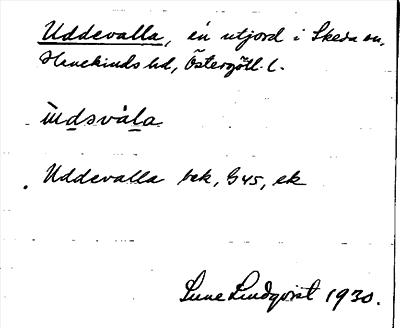 Uddevalla, en utjord i Skeda sn.
Hanekinds hd, Östergötl. l.
ùdsvàla
Uddevalla bek, G45, ek
Sune Lindqvist 1930.